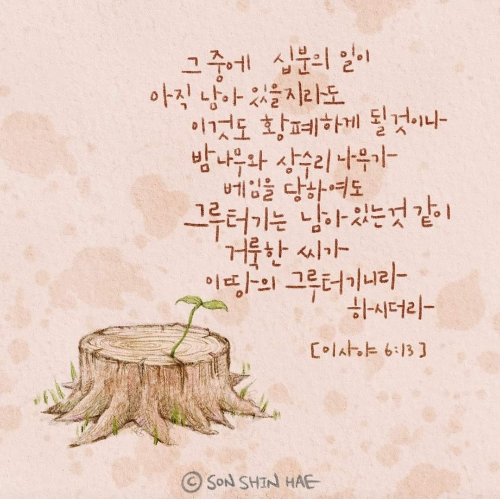 그 중에 십분의 일이
아직 남아 있을지라도
이것도 황폐하게 될 것이나
밤나무와 상수리 나무가
베임을 당하여도
그루터기는 남아 있는 것 같이
거룩한 씨가
이 땅의 그루터기니라
하시더라
[이사야 6:13]
© SON SHIN HAE